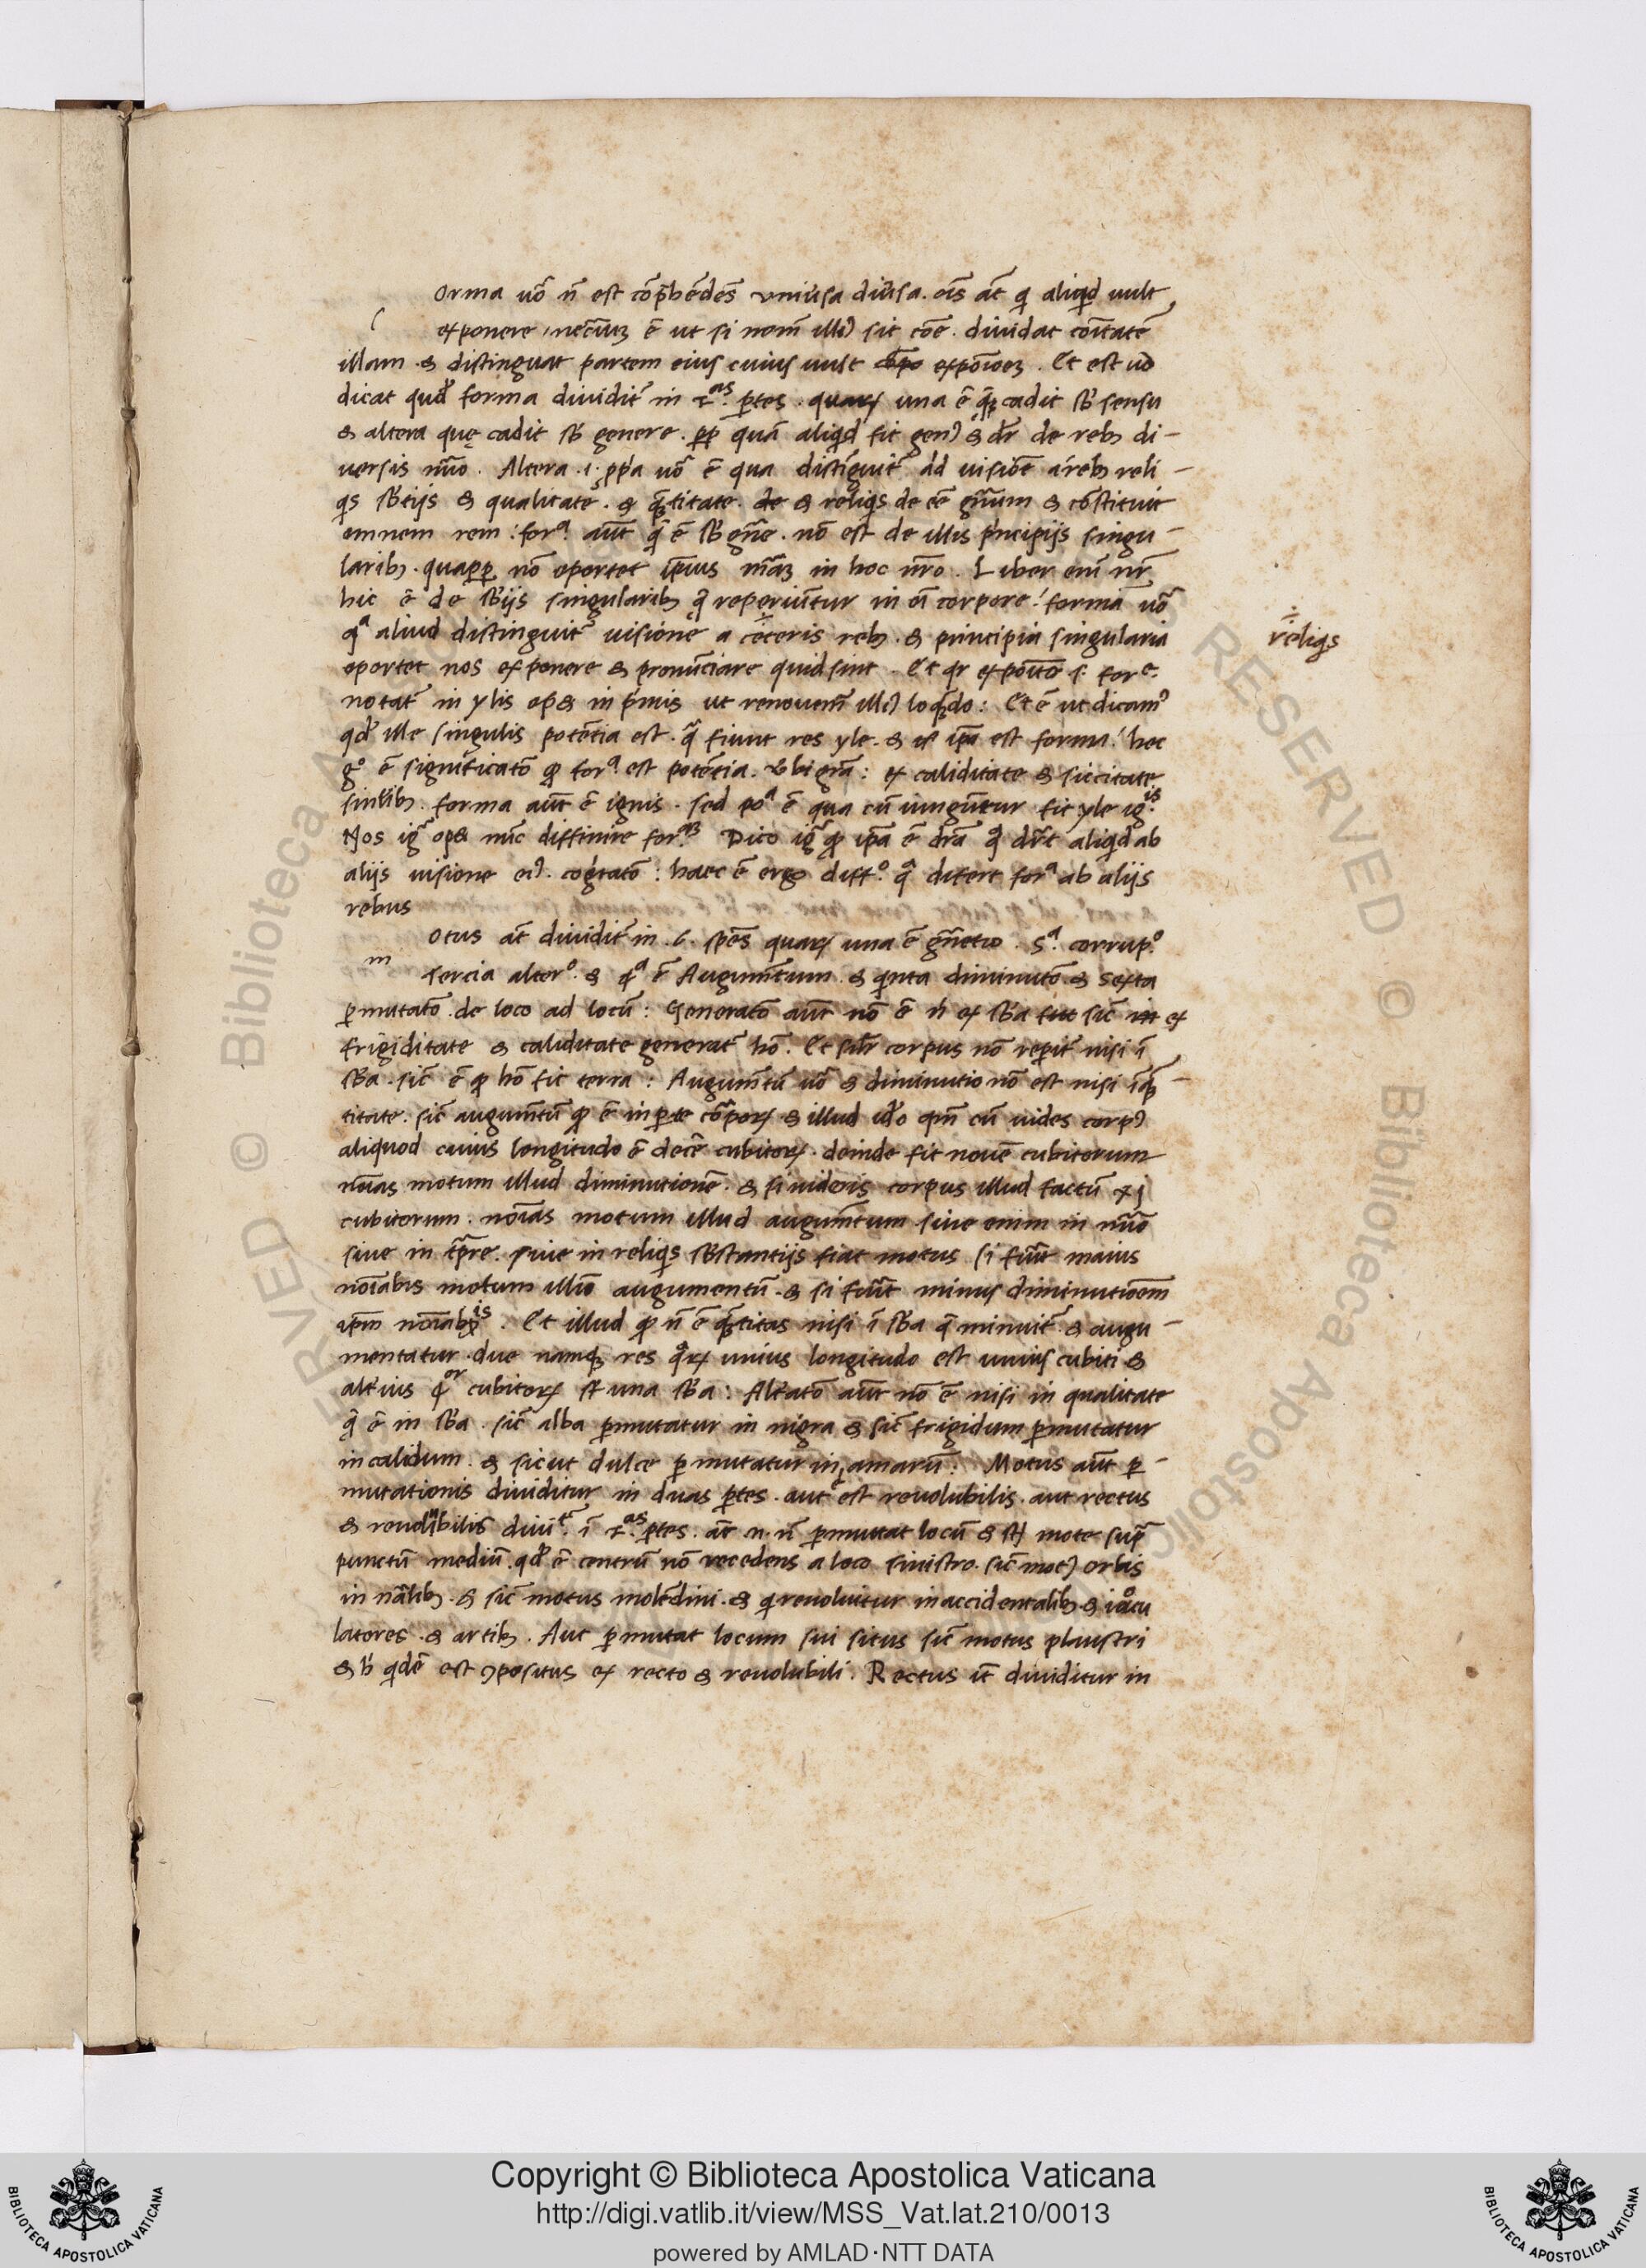 orma uõ ñ est cōp̃hēdēs uniũsa diũsa. oīs aūt qi aliqid uult
exponere, necīuʒ ē ut si nomē illiꝰ sit cōe. diuidat cōītatē
illam. & distinguat partem eius cuius uult expōīoēʒ. Et est uo
dicat qud forma diuidit̃ in 2.as p̱tes. quaꝝ una ē quę cadit sb̃ sensu
& altera quę cadit sb̃ genere. pp̃ quā aliqid fit genꝰ & dr̃ de rebꝫ di-
uersis nūo. Altera .i. pp̃a uõ ē qua distīguit̃ ad uisiōē a rebꝫ reli-
qis sb̃tijs & qualitate. & quātitate. de & reliqis de ēē gn̄ium & constituit
omnem rem: for.a aūt q̃ ē sb̃ gn̄e. nō est de illis pīncipijs singu-
laribꝫ. quapp̱ nō oportet ip̄ius mētiōʒ in hoc nr̄o. Liber enī nr̄
hic ē de sb̃ijs singularibꝫ q̃ reperiūntur in oī corpore: formā uõ
qa aliud distinguit̃ uisione a ceteris rebꝫ. & principia singularia
oportet nos exponere & pronunciare quid sint. Et qr expōīto s. for.e
notat̃ in ylis opꝫ & in pīmis ut renouem̃ illiꝰ loquēdo: Et ē ut dicamꝰ
qd ille singulis potētia est. q̃ fiunt res yle. & ip̄a est forma: hec
go ē significatō qi for.a est potētia. ubi grã: ex caliditate & siccitate
simlibꝫ. forma aūt ē ignis. sed poa ē qua cū iungūtur fit yle ig.is
Nos igr̃ opꝫ nūc diffinire for.aʒ Dico igr̃ qi ip̄a ē dr̃a q̃ dr̃t aliqid ab
alijs uisione eiꝰ. cogitatō: haec ē ergo diff.o q̃ differt for.a ab alijs
rebus
m
otus aūt diuidit̃ in .6. sp̄es quaꝝ una ē gn̄atio. S.a corrup.o
Tercia alter.o & q̃a ē Augumētum. & qinta diminutō & sexta
p̱mutatō de loco ad locū: Generatō aūt nō ē ñ ex sb̃a sic̃ ex
frigiditate & caliditate generat̃ hō. Et silr̃ corpus nō reperit̃ nisi ī
sb̃a. sic̃ ē qi hō fit terra: Augumētū uõ & diminutio nō est nisi ī quā-
titate. sic̃ augumētū qi ē in p̱te cōrpoꝝ & illud idō qm̄ cū uides corpꝰ
aliquod cuius longitudo ē decē cubitoꝝ. deinde fit nouē cubitorum
nōīas motum illud diminutionē. & si uideris corpus illud factū xj
cubitorum. nōīas motum illud augumētum siue enim in nūo
siue in tp̄re. siue in reliqis sb̃stantijs fiat motus si fuīt maius
nōīabis motum illū augumentū. & si fuīt minus diminutiōēm
ip̄m nōīabis. Et illud qi ñ ē quātitas nisi ī sb̃a q̃ minuit̃ & augu-
mentatur. due namqʒ res quaꝝ unius longitudo est unius cubiti &
alt̃ius q̃or cubitoꝝ st̃ una sb̃a: Alt̃atō aūt nō ē nisi in qualitate
q̃ ē in sb̃a. sic̃ alba p̱mutatur in nigra & sic̃ frigidum p̱mutatur
in calidum. & sicut dulce p̱mutatur in amarū: Motus aūt p̱-
mutationis diuiditur in duas p̱tes. aut est reuolubilis. aut rectus
& reuolubilis diuit̃ ī 2.as p̱tes. aūt n. ñ p̱mutat locū & st̃ mote sup̃
punctū mediū. qd ē centrū nō recedens a loco sinistro. sic̃ motꝰ orbis
in nāl̃ibꝫ. & sic̃ motus molēdini. & qi reuoluitur in accidentalibꝫ & iocu
latores. & artibꝫ. Aut p̱mutat locum sui situs sic̃ motus plaustri
& h̃ qidē est ꝯpositus ex recto & reuolubili. Rectus it̃ diuiditur in
reliqis
Copyright © Biblioteca Apostolica Vaticana
http://digi.vatlib.it/view/MSS_Vat.lat.210/0013
powered by AMLAD·NTT DATA
BIBLIOTECA APOSTOLICA VATICANA
BIBLIOTECA APOSTOLICA VATICANA